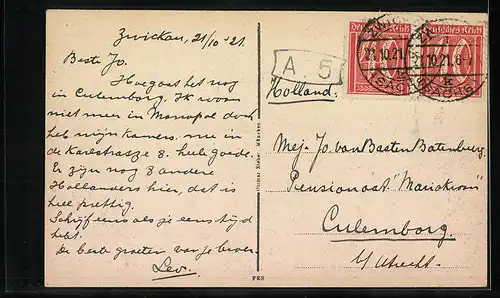 Zwickau, 21/10 '21.
Beste Jo.
Hoe gaat het nog
in Culemborg. Ik woon
niet meer in Monopol doch
heb mijn kamers me in
de Karlstrasze 8. heele goede.
Er zijn nog 8 andere
Hollanders hier, dat is
heel prettig.
Schrijf eens als je eens tijd
hebt.
De beste groeten van je broer
Lex.
Ottmar Zieher, München
FES
A. 5
Holland.
Deutsches Reich
40
21.10.21.
Mej. Jo. van Basten Batenburg.
Pensionaat "Mariakroon"
Culemborg
b/ Utrecht.